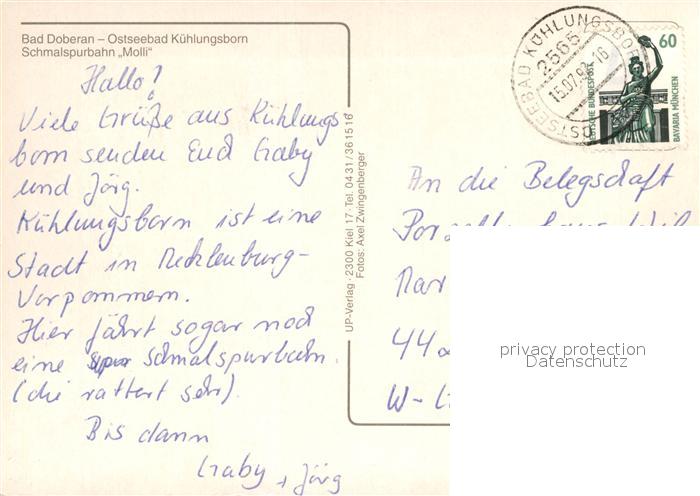 Bad Doberan – Ostseebad Kühlungsborn
Schmalspurbahn „Molli"
Hallo!
Viele Grüße aus Kühlungs
born senden Euch Gaby
und Jörg.
Kühlungsborn ist eine
Stadt in Mecklenburg-
Vorpommern.
Hier fährt sogar noch
eine Schmalspurbahn.
(die rattert sehr).
Bis dann
Gaby + Jörg
UP-Verlag · 2300 Kiel 17 · Tel. 0431/361516
Fotos: Axel Zwingenberger
OSTSEEBAD KÜHLUNGSBORN
2565
15.07.9
16
60
DEUTSCHE BUNDESPOST
BAVARIA MÜNCHEN
An die Belegschaft
44
W-
privacy protection
Datenschutz